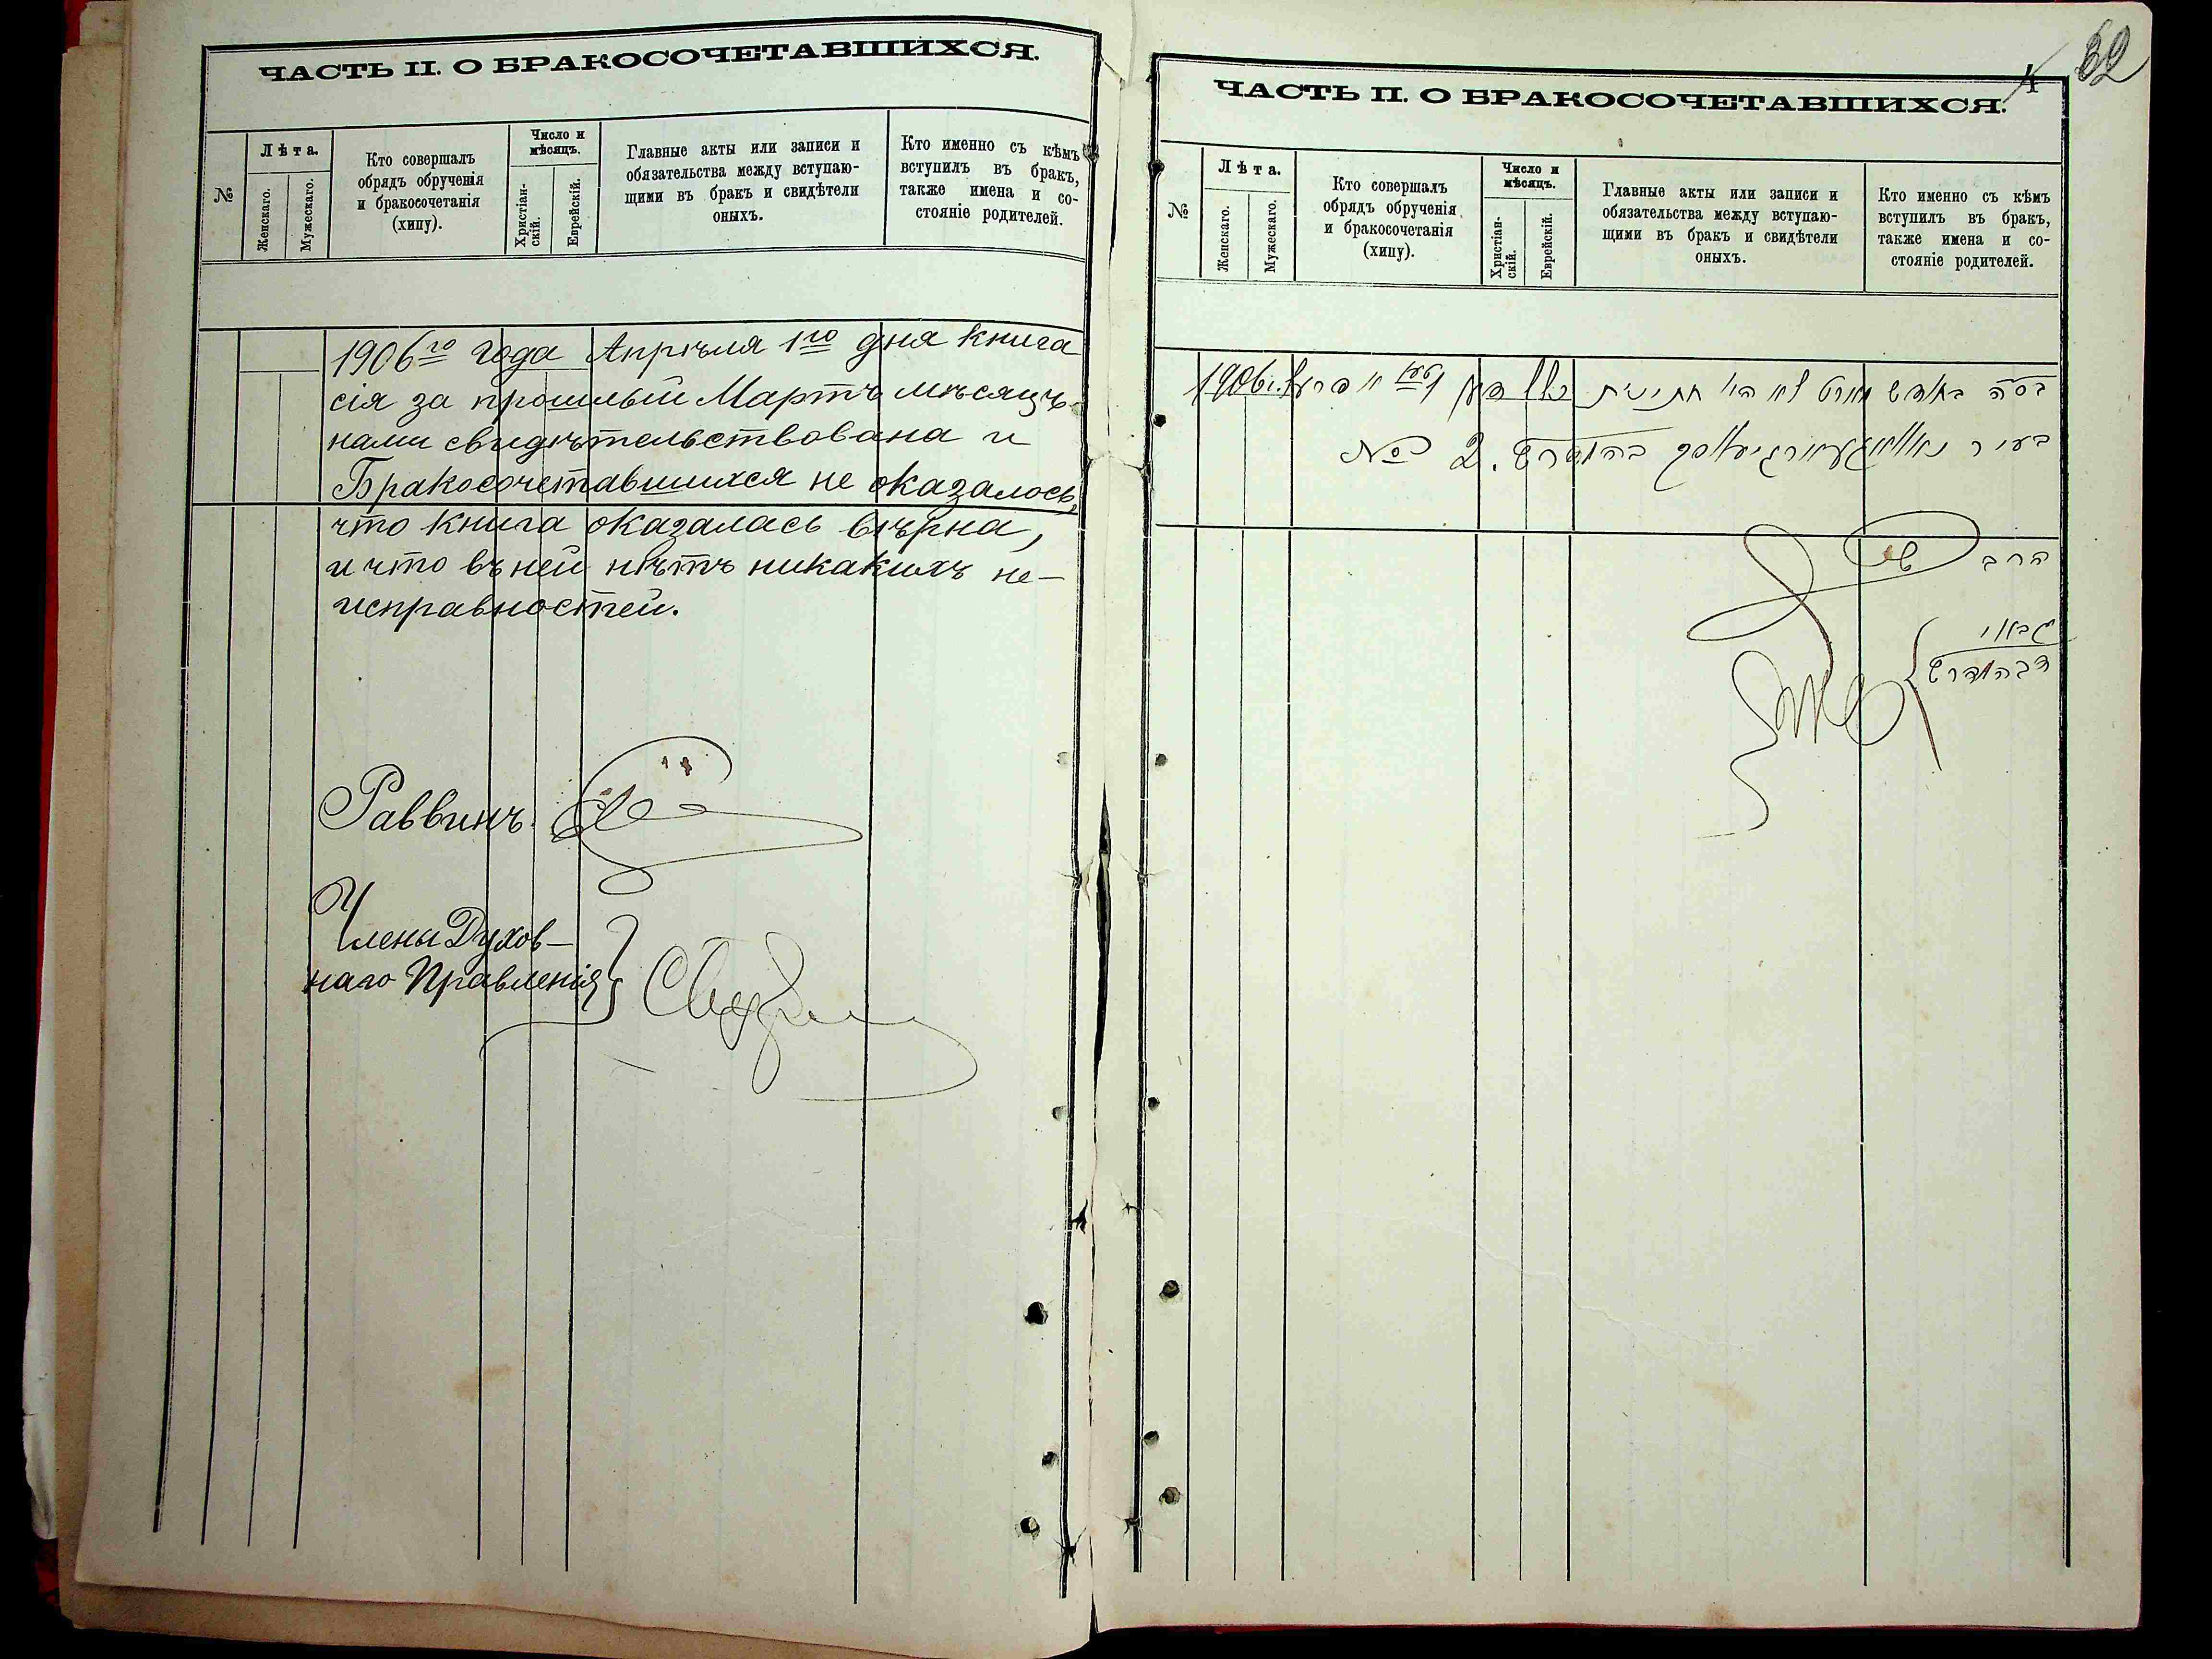 ЧАСТЬ II. О БРАКОСОЧЕТАВШИХСЯ.
№
Лѣта.
Женскаго.
Мужескаго.
Кто совершалъ
обрядъ обрученія
и бракосочетанія
(хипу).
Число и
мѣсяцъ.
Христіан-
скій.
Еврейскій.
Главные акты или записи и
обязательства между вступаю-
щими въ бракъ и свидѣтели
оныхъ.
Кто именно съ кѣмъ
вступилъ въ бракъ,
также имена и со-
стояніе родителей.
1906го года Апрѣля 1го дня книга
сія за прошлый Мартъ мѣсяцъ
нами свидѣтельствована и
Бракосочетавшихся не оказалось,
что книга оказалась вѣрна,
и что въ ней нѣтъ никакихъ не-
исправностей.
Раввинъ.
Члены Духов-
наго Правленія
4
62
ЧАСТЬ II. О БРАКОСОЧЕТАВШИХСЯ.
№
Лѣта.
Женскаго.
Мужескаго.
Кто совершалъ
обрядъ обрученія
и бракосочетанія
(хипу).
Число и
мѣсяцъ.
Христіан-
скій.
Еврейскій.
Главные акты или записи и
обязательства между вступаю-
щими въ бракъ и свидѣтели
оныхъ.
Кто именно съ кѣмъ
вступилъ въ бракъ,
также имена и со-
стояніе родителей.
בחדש מארט לא היו 1906
בעיר בהמדרש № 2.
הרב
גבאי
דבהמדרש